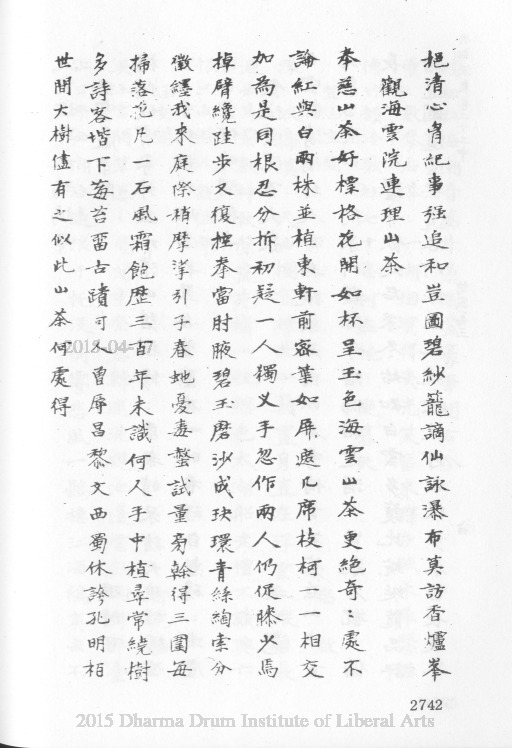 挹清心膂紀事强追和豈圖碧紗籠謫仙詠瀑布莫訪香爐峯
觀海雲院連理山茶
奉慈山茶好標格花開如杯呈玉色海雲山茶更絶奇處不
論紅與白兩株並植東軒前密葉如屏遮几席枝柯一一相交
加為是同根忍分拆初疑一人獨义手忽作兩人仍促膝少焉
掉臂繞跬步又復拴拳當肘腋碧玉磨沙成玦環青絲綯索分
徽纆我来庭際捎摩挲引子春虵憂毒螫試量旁榦得三圍每
掃落花凡一石風霜飽歴三百年未識何人手中植尋常繞樹
多詩客堦下莓苔留古蹟可人曾辱昌黎文西蜀休誇孔明柏
世間大樹儘有之似此山茶何處得
2018-04-17
2742
2015 Dharma Drum Institute of Liberal Arts